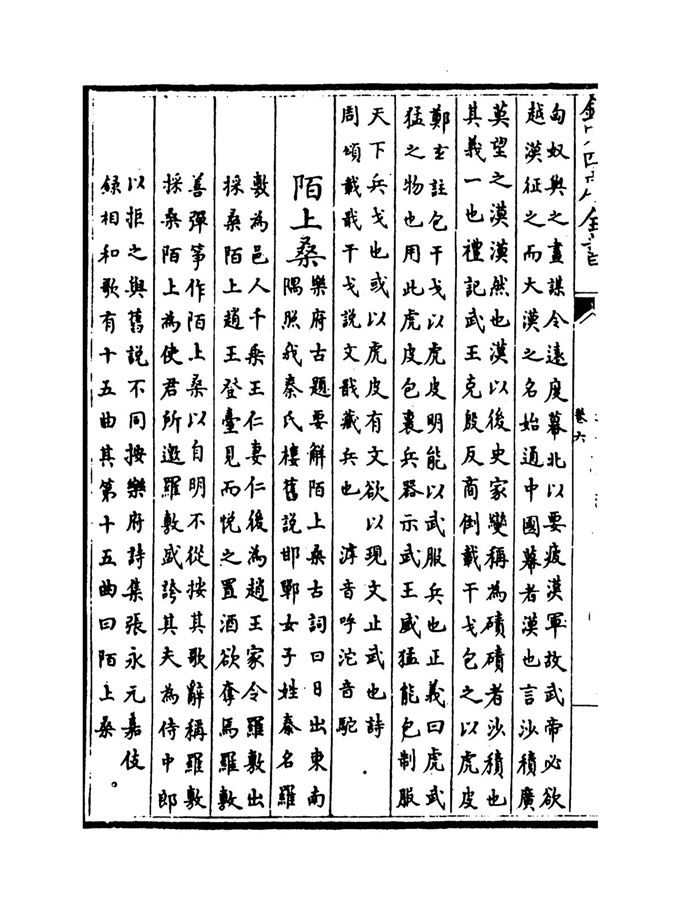 卷六
匈奴與之畫謀令遠度幕北以要疲漢軍故武帝必欲
越漠征之而大漠之名始通中國幕者漠也言沙積廣
莫望之漠漠然也漢以後史家變稱為磧磧者沙積也
其義一也禮記武王克殷反商倒載干戈包之以虎皮
鄭玄註包干戈以虎皮明能以武服兵也正義曰虎武
猛之物也用此虎皮包裹兵器示武王威猛能包制服
天下兵戈也或以虎皮有文欲以現文止武也詩
周頌載戢干戈説文戢藏兵也　淳音呼沱音駝
陌上桑
樂府古題要解陌上桑古詞曰日出東南
隅照我秦氏樓舊説邯鄲女子姓秦名羅
敷為邑人千乗王仁妻仁後為趙王家令羅敷出
採桑陌上趙王登臺見而悦之置酒欲奪焉羅敷
善彈箏作陌上桑以自明不從按其歌辭稱羅敷
採桑陌上為使君所邀羅敷盛誇其夫為侍中郎
以拒之與舊説不同按樂府詩集張永元嘉伎
録相和歌有十五曲其第十五曲曰陌上桑。